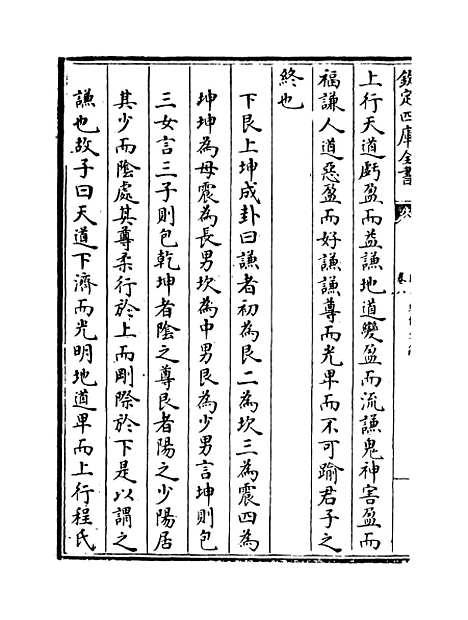 欽定四庫全書
上行天道虧盈而益謙地道變盈而流謙鬼神害盈而
福謙人道惡盈而好謙謙尊而光卑而不可踰君子之
終也
下艮上坤成卦曰謙者初為艮二為坎三為震四為
坤坤為母震為長男坎為中男艮為少男言坤則包
三女言三子則包乾坤者陰之尊艮者陽之少陽居
其少而陰處其尊柔行於上而剛際於下是以謂之
謙也故子曰天道下濟而光明地道卑而上行程氏